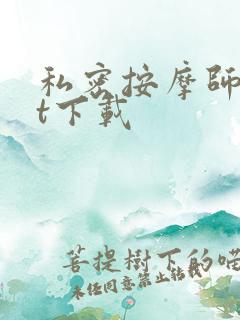 私密按摩師
t下載
菩提樹下的喵
未任同意禁止轉載